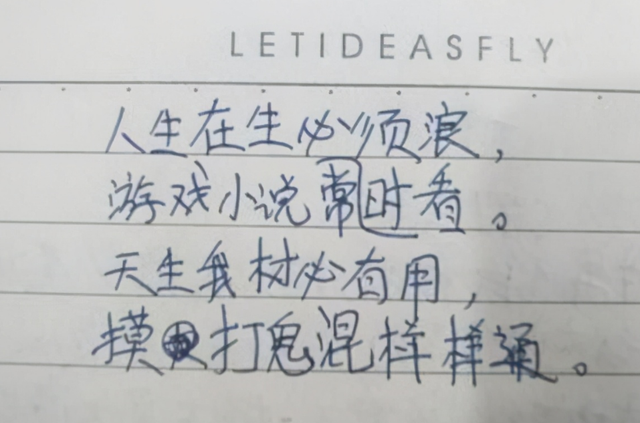 LETIDEASFLY
人生在生必须浪，
游戏小说常时看。
天生我材必有用，
摸打鬼混样样通。